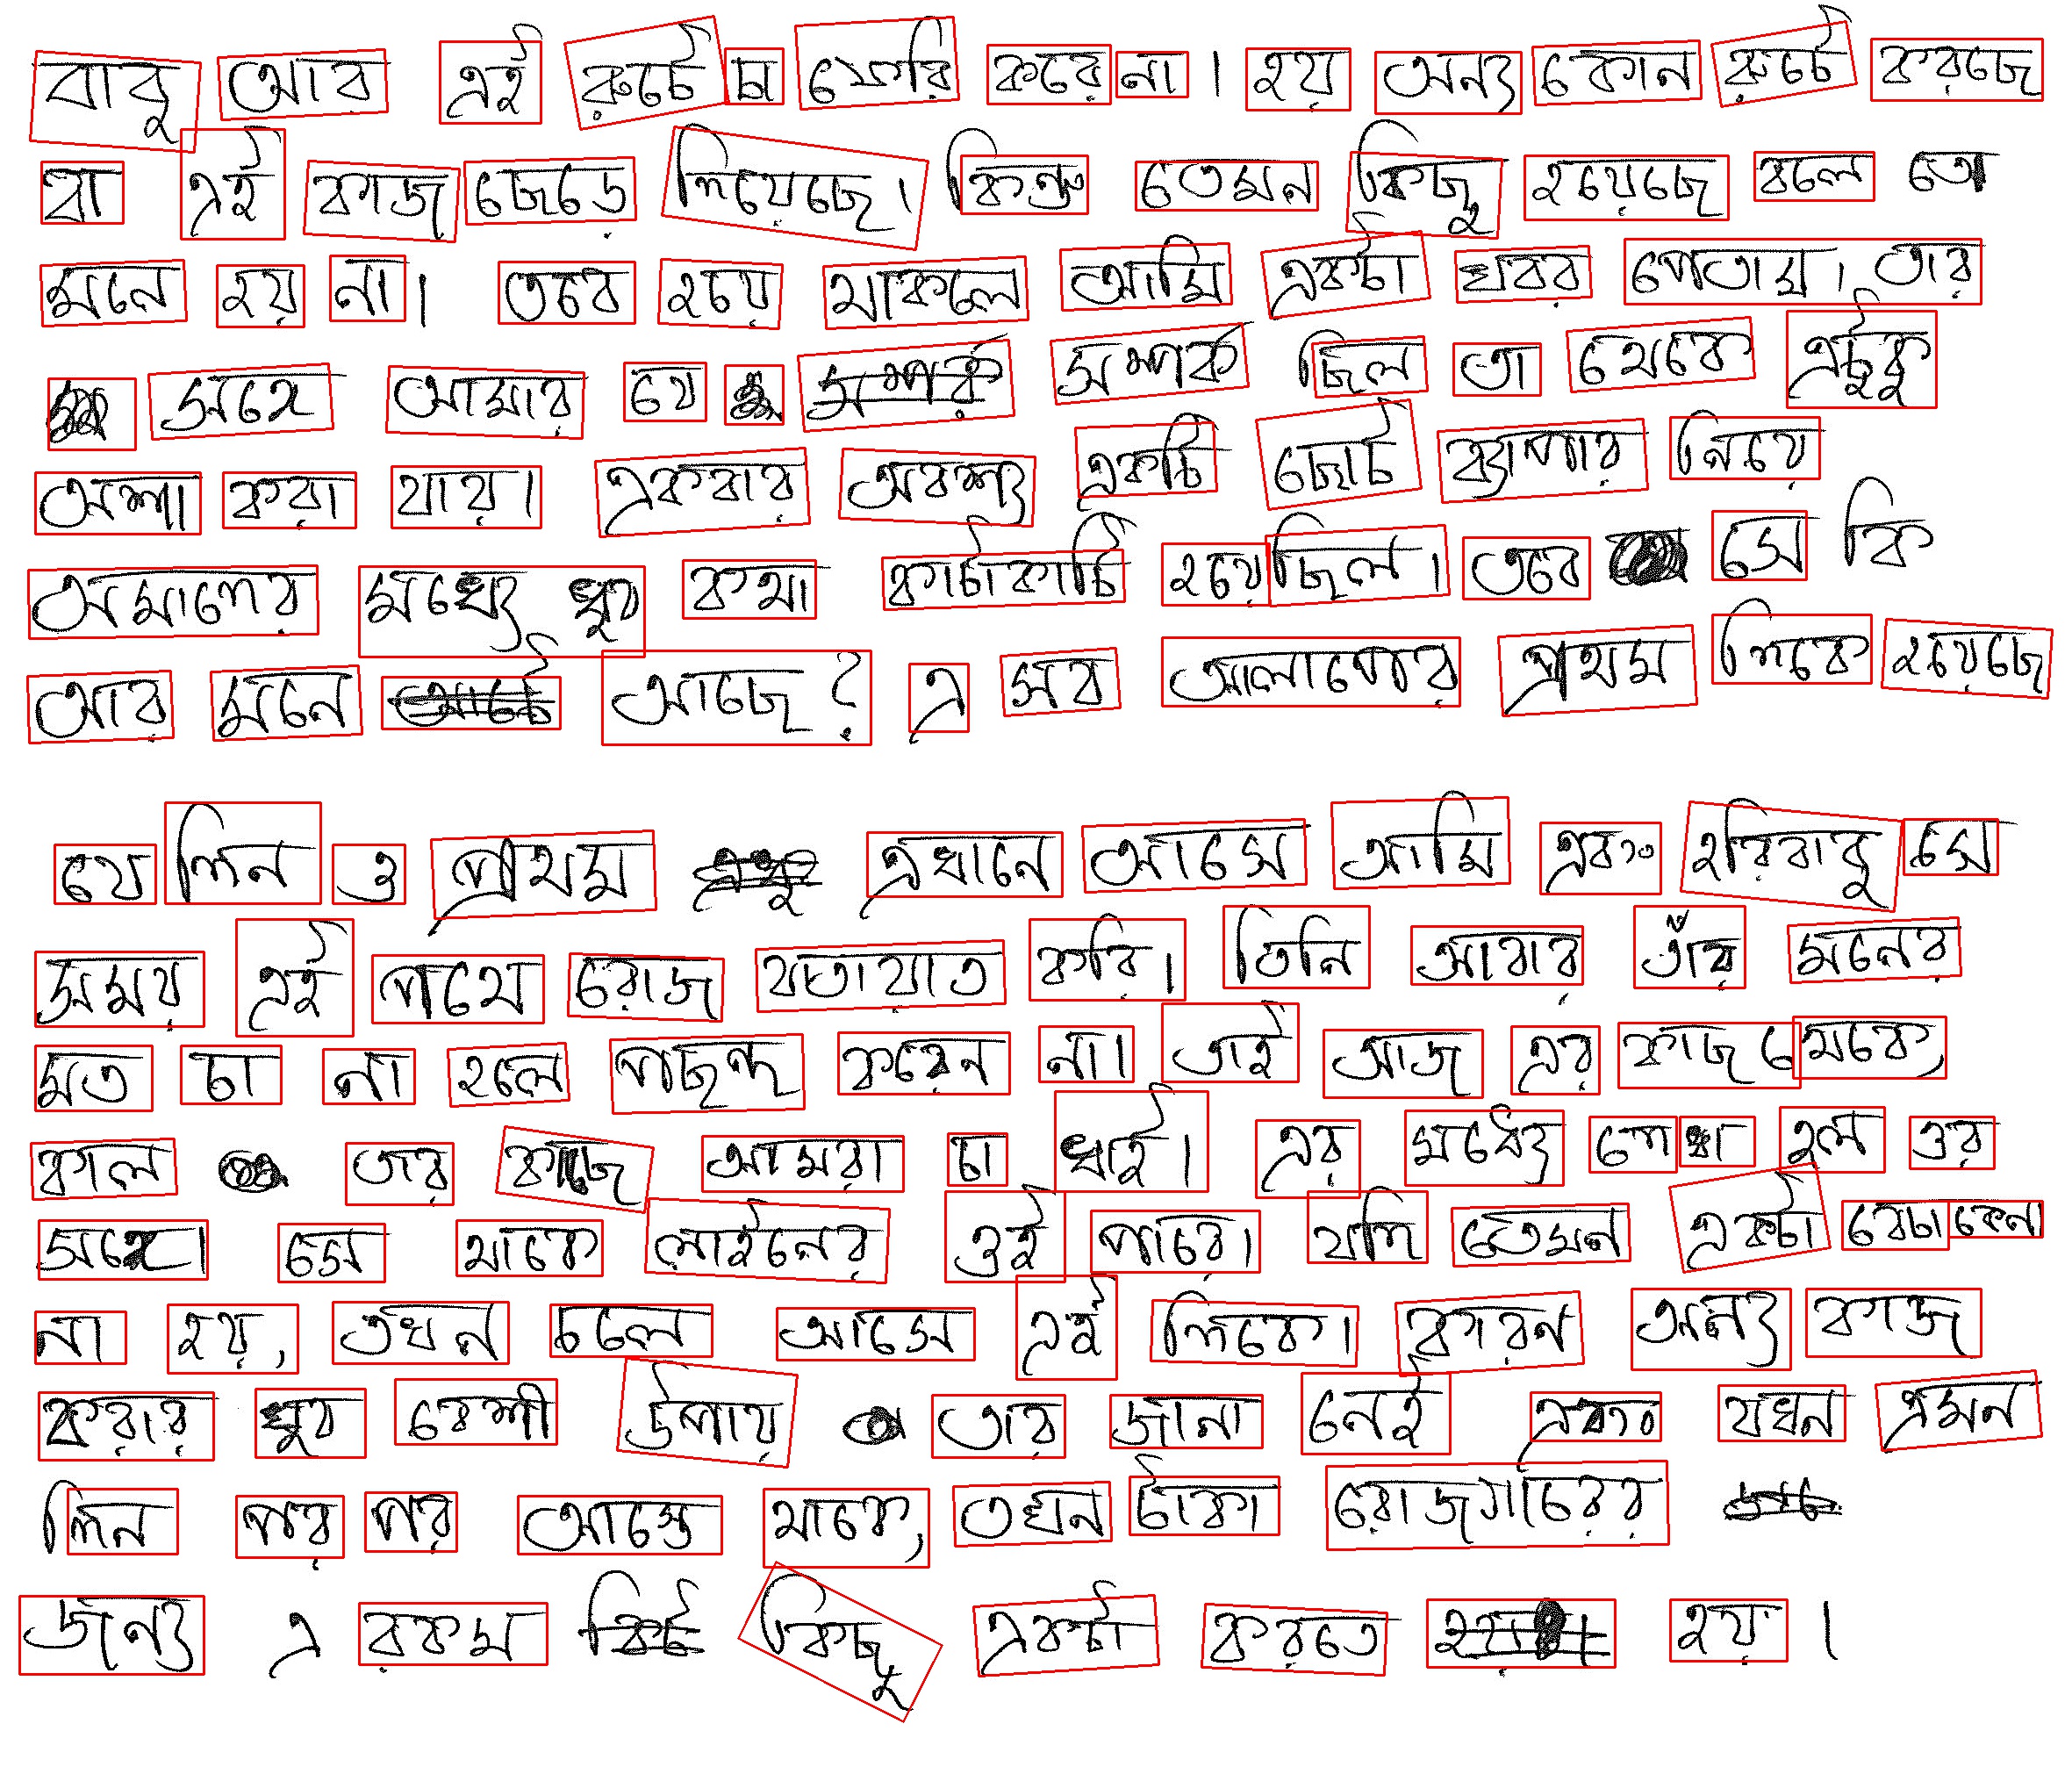 বাবু আর এই রুটে চা ফেরি করে না। হয় অন্য কোন রুটে করছে
বা এই কাজ ছেড়ে দিয়েছে। কিন্তু তেমন কিছু হয়েছে বলে তো
মনে হয় না। তবে হয়ে থাকলে আমি একটা খবর পেতাম। তার
সঙ্গে আমার যে সম্পর্ক ছিল তা থেকে এটুকু
আশা করা যায়। একবার অবশ্য একটি ছোট ব্যাপার নিয়ে
আমাদের মধ্যে খুব কথা কাটাকাটি হয়েছিল। তবে সে কি
আর মনে আছে? এ সব আলাপের প্রথম দিকে হয়েছে
যে দিন ও প্রথম এখানে আসে আমি এবং হরিবাবু সে
সময় এই পথে রোজ যতায়াত করি। তিনি আবার তাঁর মনের
মত চা না হলে পছন্দ করেন না। তাই আজ এর কাছ থেকে,
কাল তার কাছে আমরা চা খাই। এর মধ্যে দেখা হল ওর
সঙ্গে। সে থাকে লাইনের ওই পারে। যদি তেমন একটা বেচাকেনা
না হয়, তখন চলে আসে এই দিকে। কারন অন্য কাজ
করার খুব বেশী উপায় তার জানা নেই এবং যখন এমন
দিন পর পর আস্তে থাকে, তখন টাকা রোজগারের
জন্য এ রকম কিছু একটা করতে হয়।